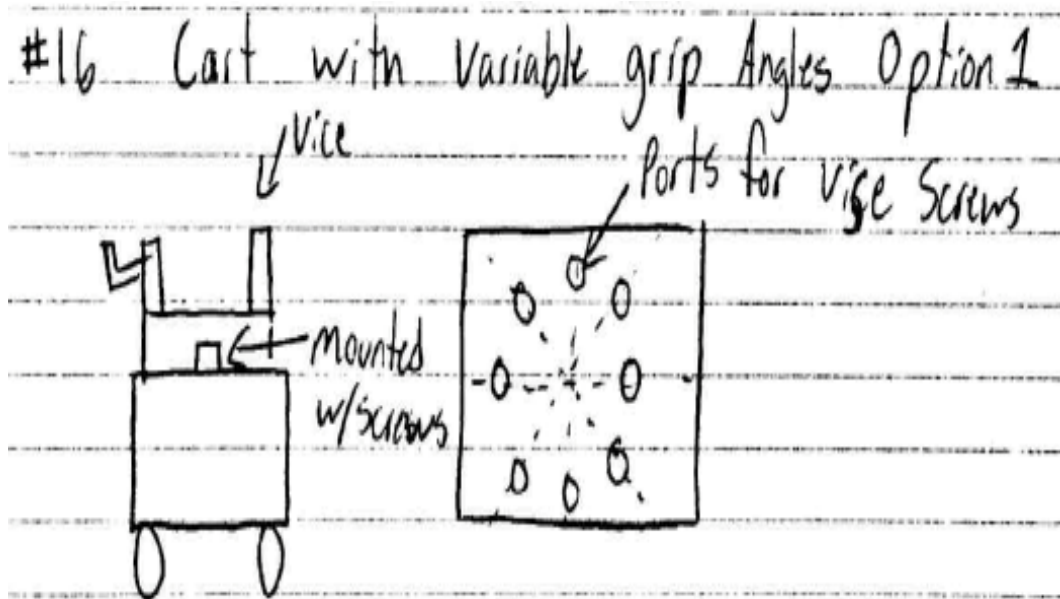 #16 Cart with Variable grip Angles Option 1
Vice
Ports for Vise Screws
Mounted
w/screws